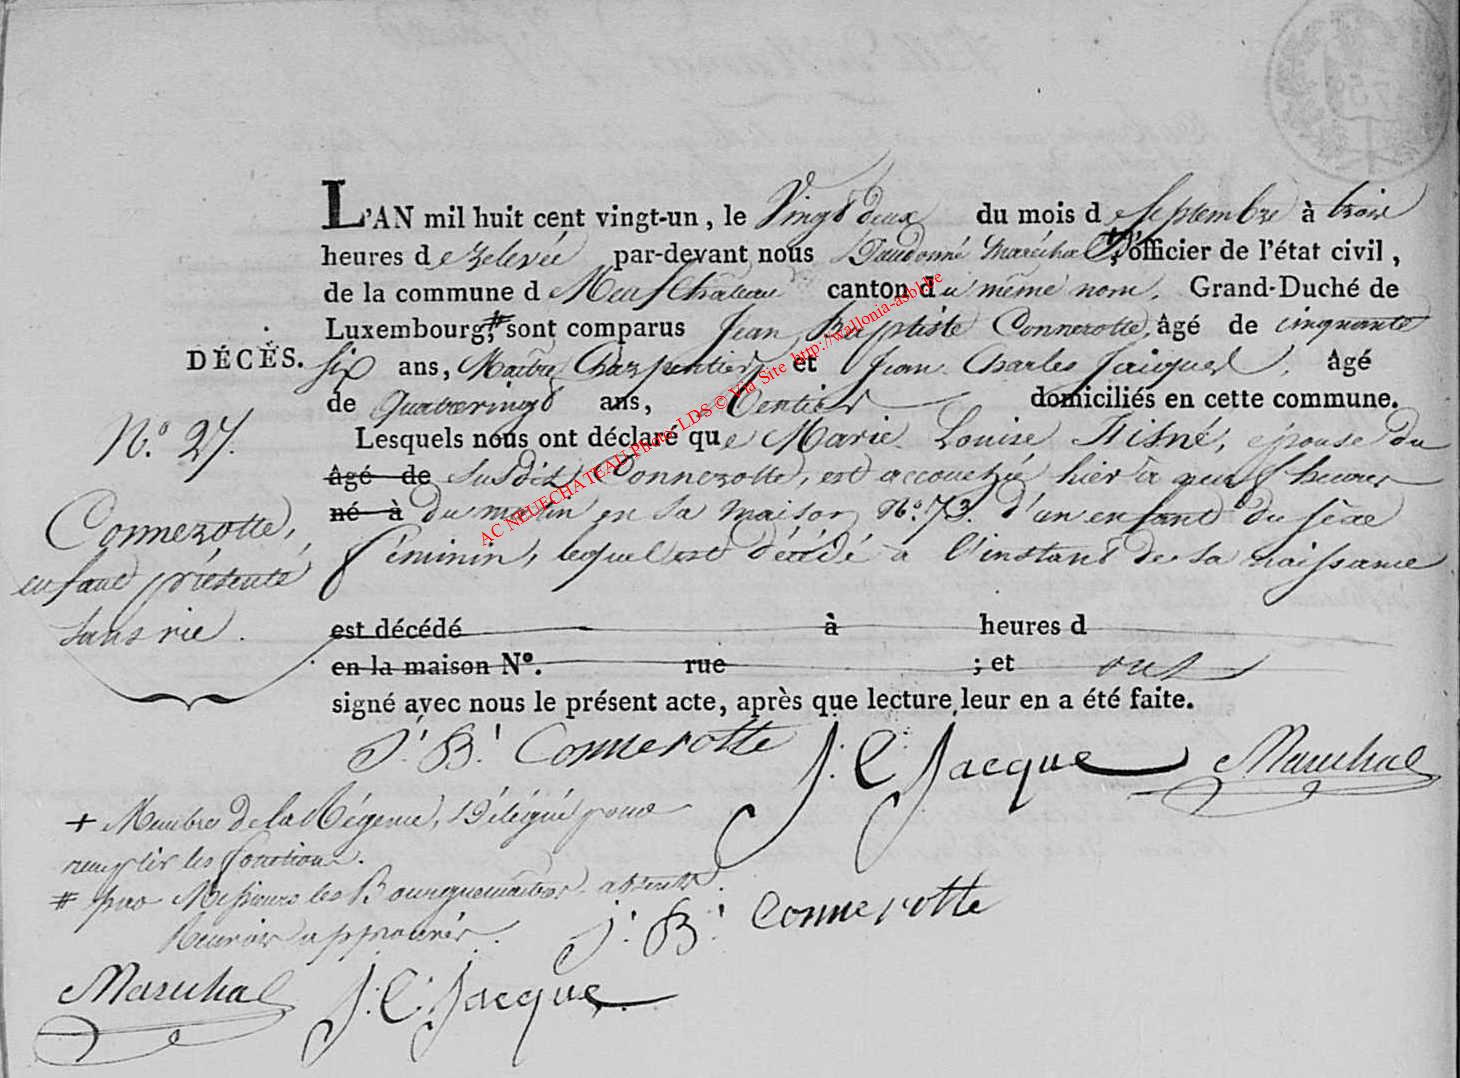 L'AN mil huit cent vingt-un, le Vingt deux du mois de Septembre à trois
heures de relevée par-devant nous Daudonné Maréchal + l'officier de l'état civil,
de la commune de Neufchateau canton du même nom, Grand-Duché de
Luxembourg, # sont comparus Jean Baptiste Connerotte, âgé de cinquante
DÉCÈS. six ans, Maitre Charpentier et Jean Charles Jacques, âgé
de Quatrevingt ans, Rentier domiciliés en cette commune.
Lesquels nous ont déclaré que Marie Louise Tisné, épouse du
N.º 27. âgé de susdit Connerotte, est accouchée hier à neuf heures
né à du matin en sa maison Nº. 73. d'un enfant du sèxe
Connerotte, féminin, lequel est décédé à l'instant de sa naissance
enfant présenté
sans vie. est décédé à heures d
en la maison Nº. rue ; et ont
signé avec nous le présent acte, après que lecture leur en a été faite.
J. B. Connerotte J. C. Jacque Marechal
+ Membre de la Régence, Délégué pour
remplir les fonctions.
# par Messieurs les Bourguemaitres absents.
Renvois approuvés. J. B. Connerotte
Marechal J. C. Jacque
AC NEUFCHATEAU Photo-LDS © Via Site http://wallonia-asbl.be